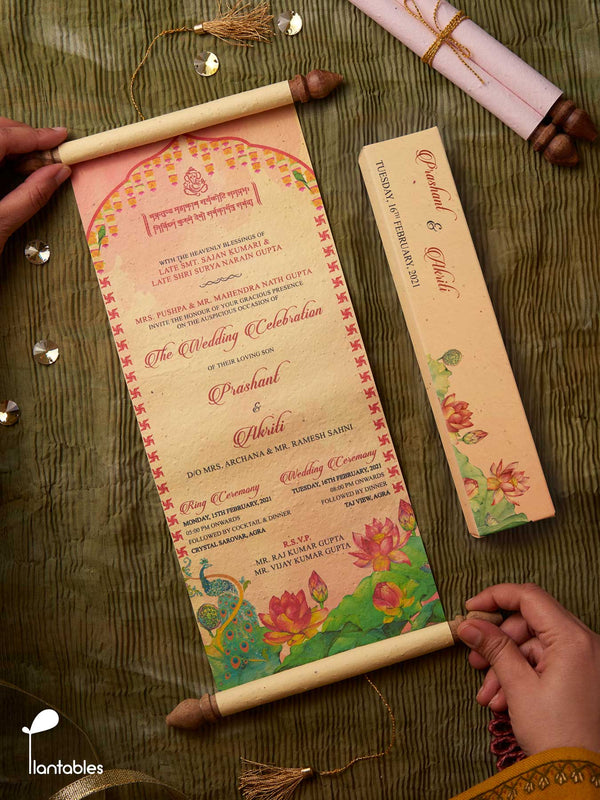 WITH THE HEAVENLY BLESSINGS OF
LATE SMT. SAJAN KUMARI &
LATE SHRI SURYA NARAIN GUPTA
MRS. PUSHPA & MR. MAHENDRA NATH GUPTA
INVITE THE HONOUR OF YOUR GRACIOUS PRESENCE
ON THE AUSPICIOUS OCCASION OF
The Wedding Celebration
OF THEIR LOVING SON
Prashant
&
Akriti
D/O MRS. ARCHANA & MR. RAMESH SAHNI
Ring Ceremony
MONDAY, 15TH FEBRUARY, 2021
05:00 PM ONWARDS
FOLLOWED BY COCKTAIL & DINNER
CRYSTAL SAROVAR, AGRA
Wedding Ceremony
TUESDAY, 16TH FEBRUARY, 2021
08:00 PM ONWARDS
FOLLOWED BY DINNER
TAJ VIEW, AGRA
R.S.V.P.
MR. RAJ KUMAR GUPTA
MR. VIJAY KUMAR GUPTA
Prashant & Akriti
TUESDAY, 16TH FEBRUARY, 2021
Plantables